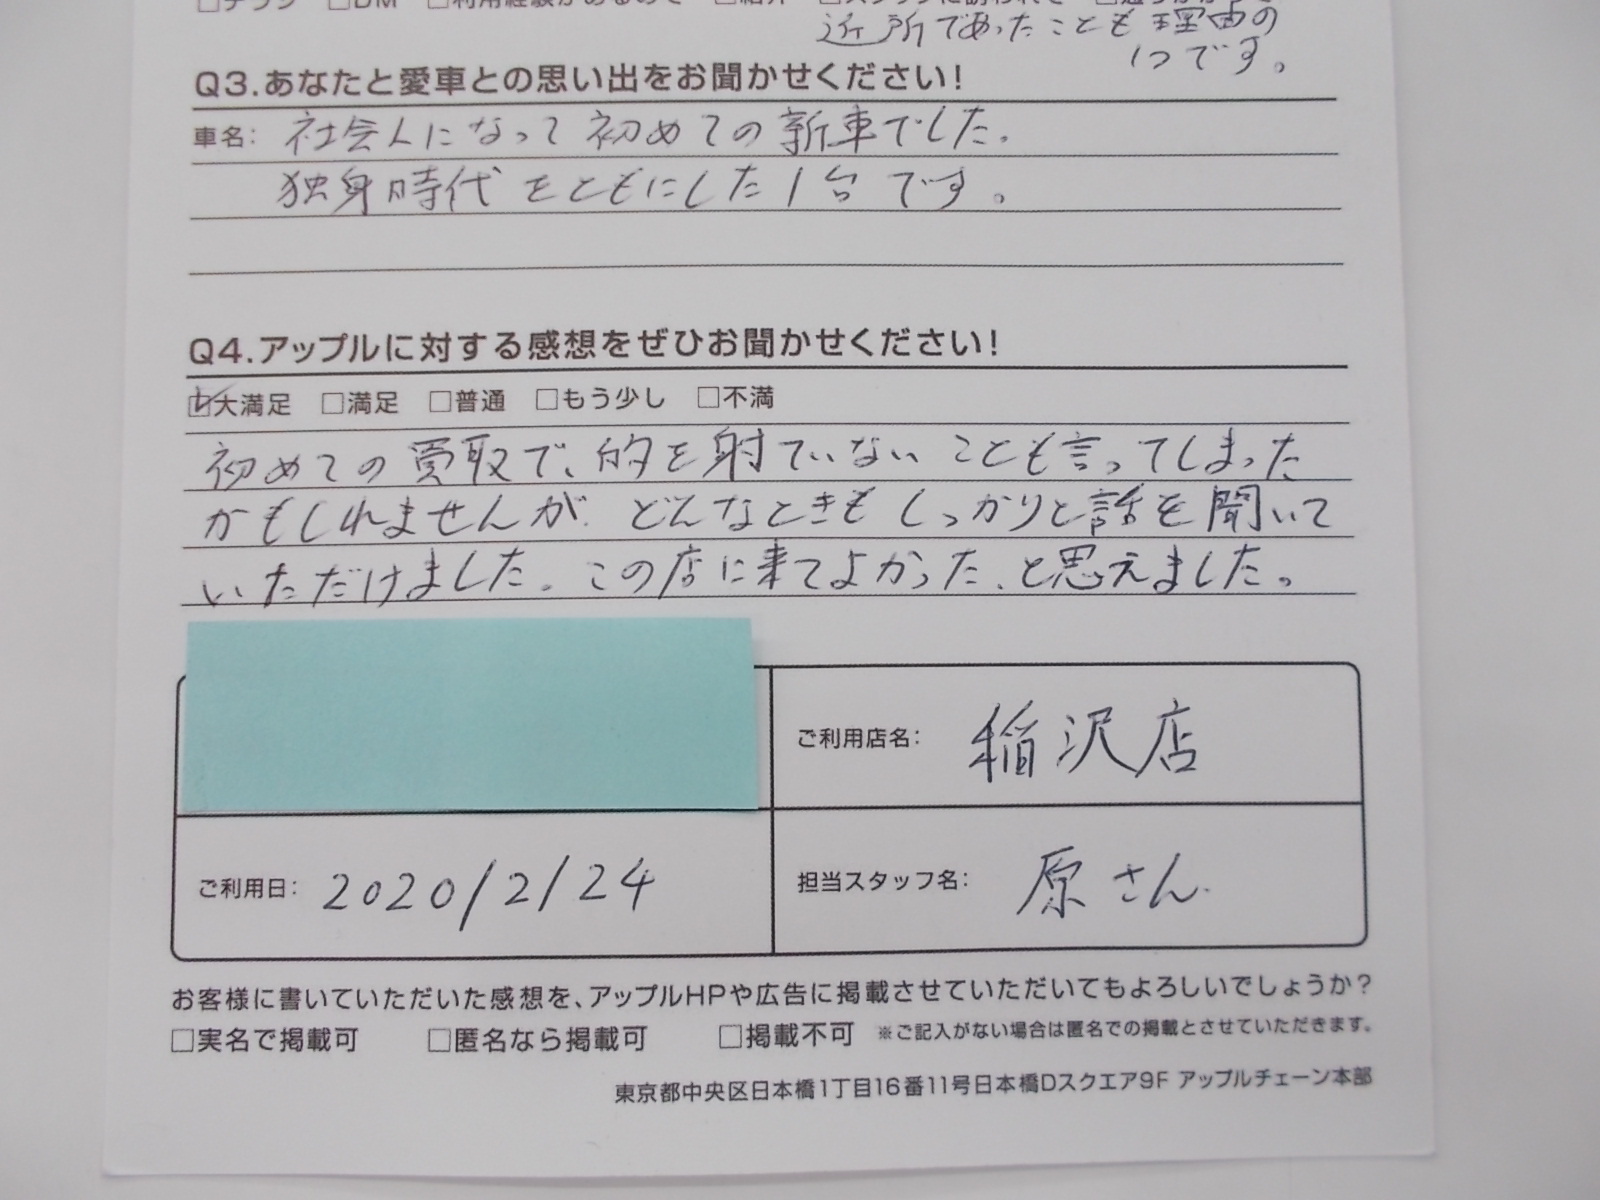 近所であったことも理由の
1つです。
Q3.あなたと愛車との思い出をお聞かせください!
車名: 社会人になって初めての新車でした。
独身時代をともにした1台です。
Q4.アップルに対する感想をぜひお聞かせください!
☑大満足 □満足 □普通 □もう少し □不満
初めての買取で、的を射ていないことも言ってしまった
かもしれませんが、どんなときもしっかりと話を聞いて
いただけました。この店に来てよかった、と思えました。
ご利用店名: 稲沢店
ご利用日: 2020/2/24
担当スタッフ名: 原さん
お客様に書いていただいた感想を、アップルHPや広告に掲載させていただいてもよろしいでしょうか?
□実名で掲載可 □匿名なら掲載可 □掲載不可 ※ご記入がない場合は匿名での掲載とさせていただきます。
東京都中央区日本橋1丁目16番11号日本橋Dスクエア9F アップルチェーン本部